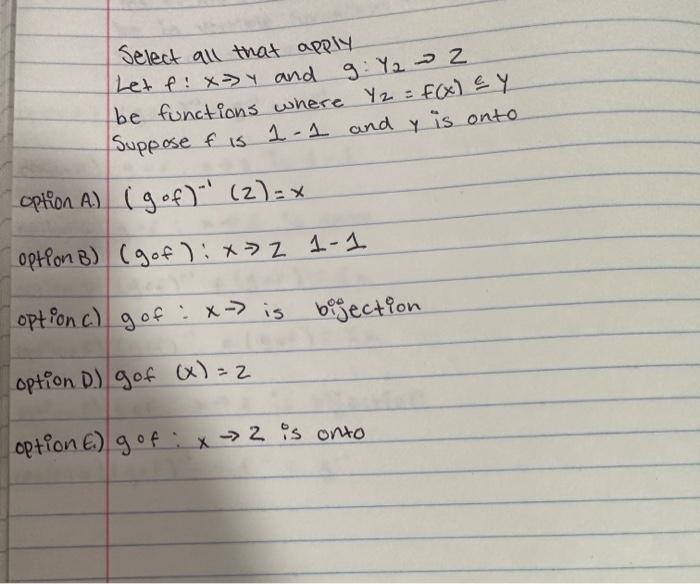 Select all that apply
Let f: x→y and g: Y2 → Z
be functions where Y2 = f(x) ⊆ Y
Suppose f is 1-1 and y is onto
option A.) (gof)⁻¹ (z)=x
option B) (gof): x→z 1-1
option c.) gof : x→ is bijection
option D.) gof (x) = z
option E.) gof : x → z is onto